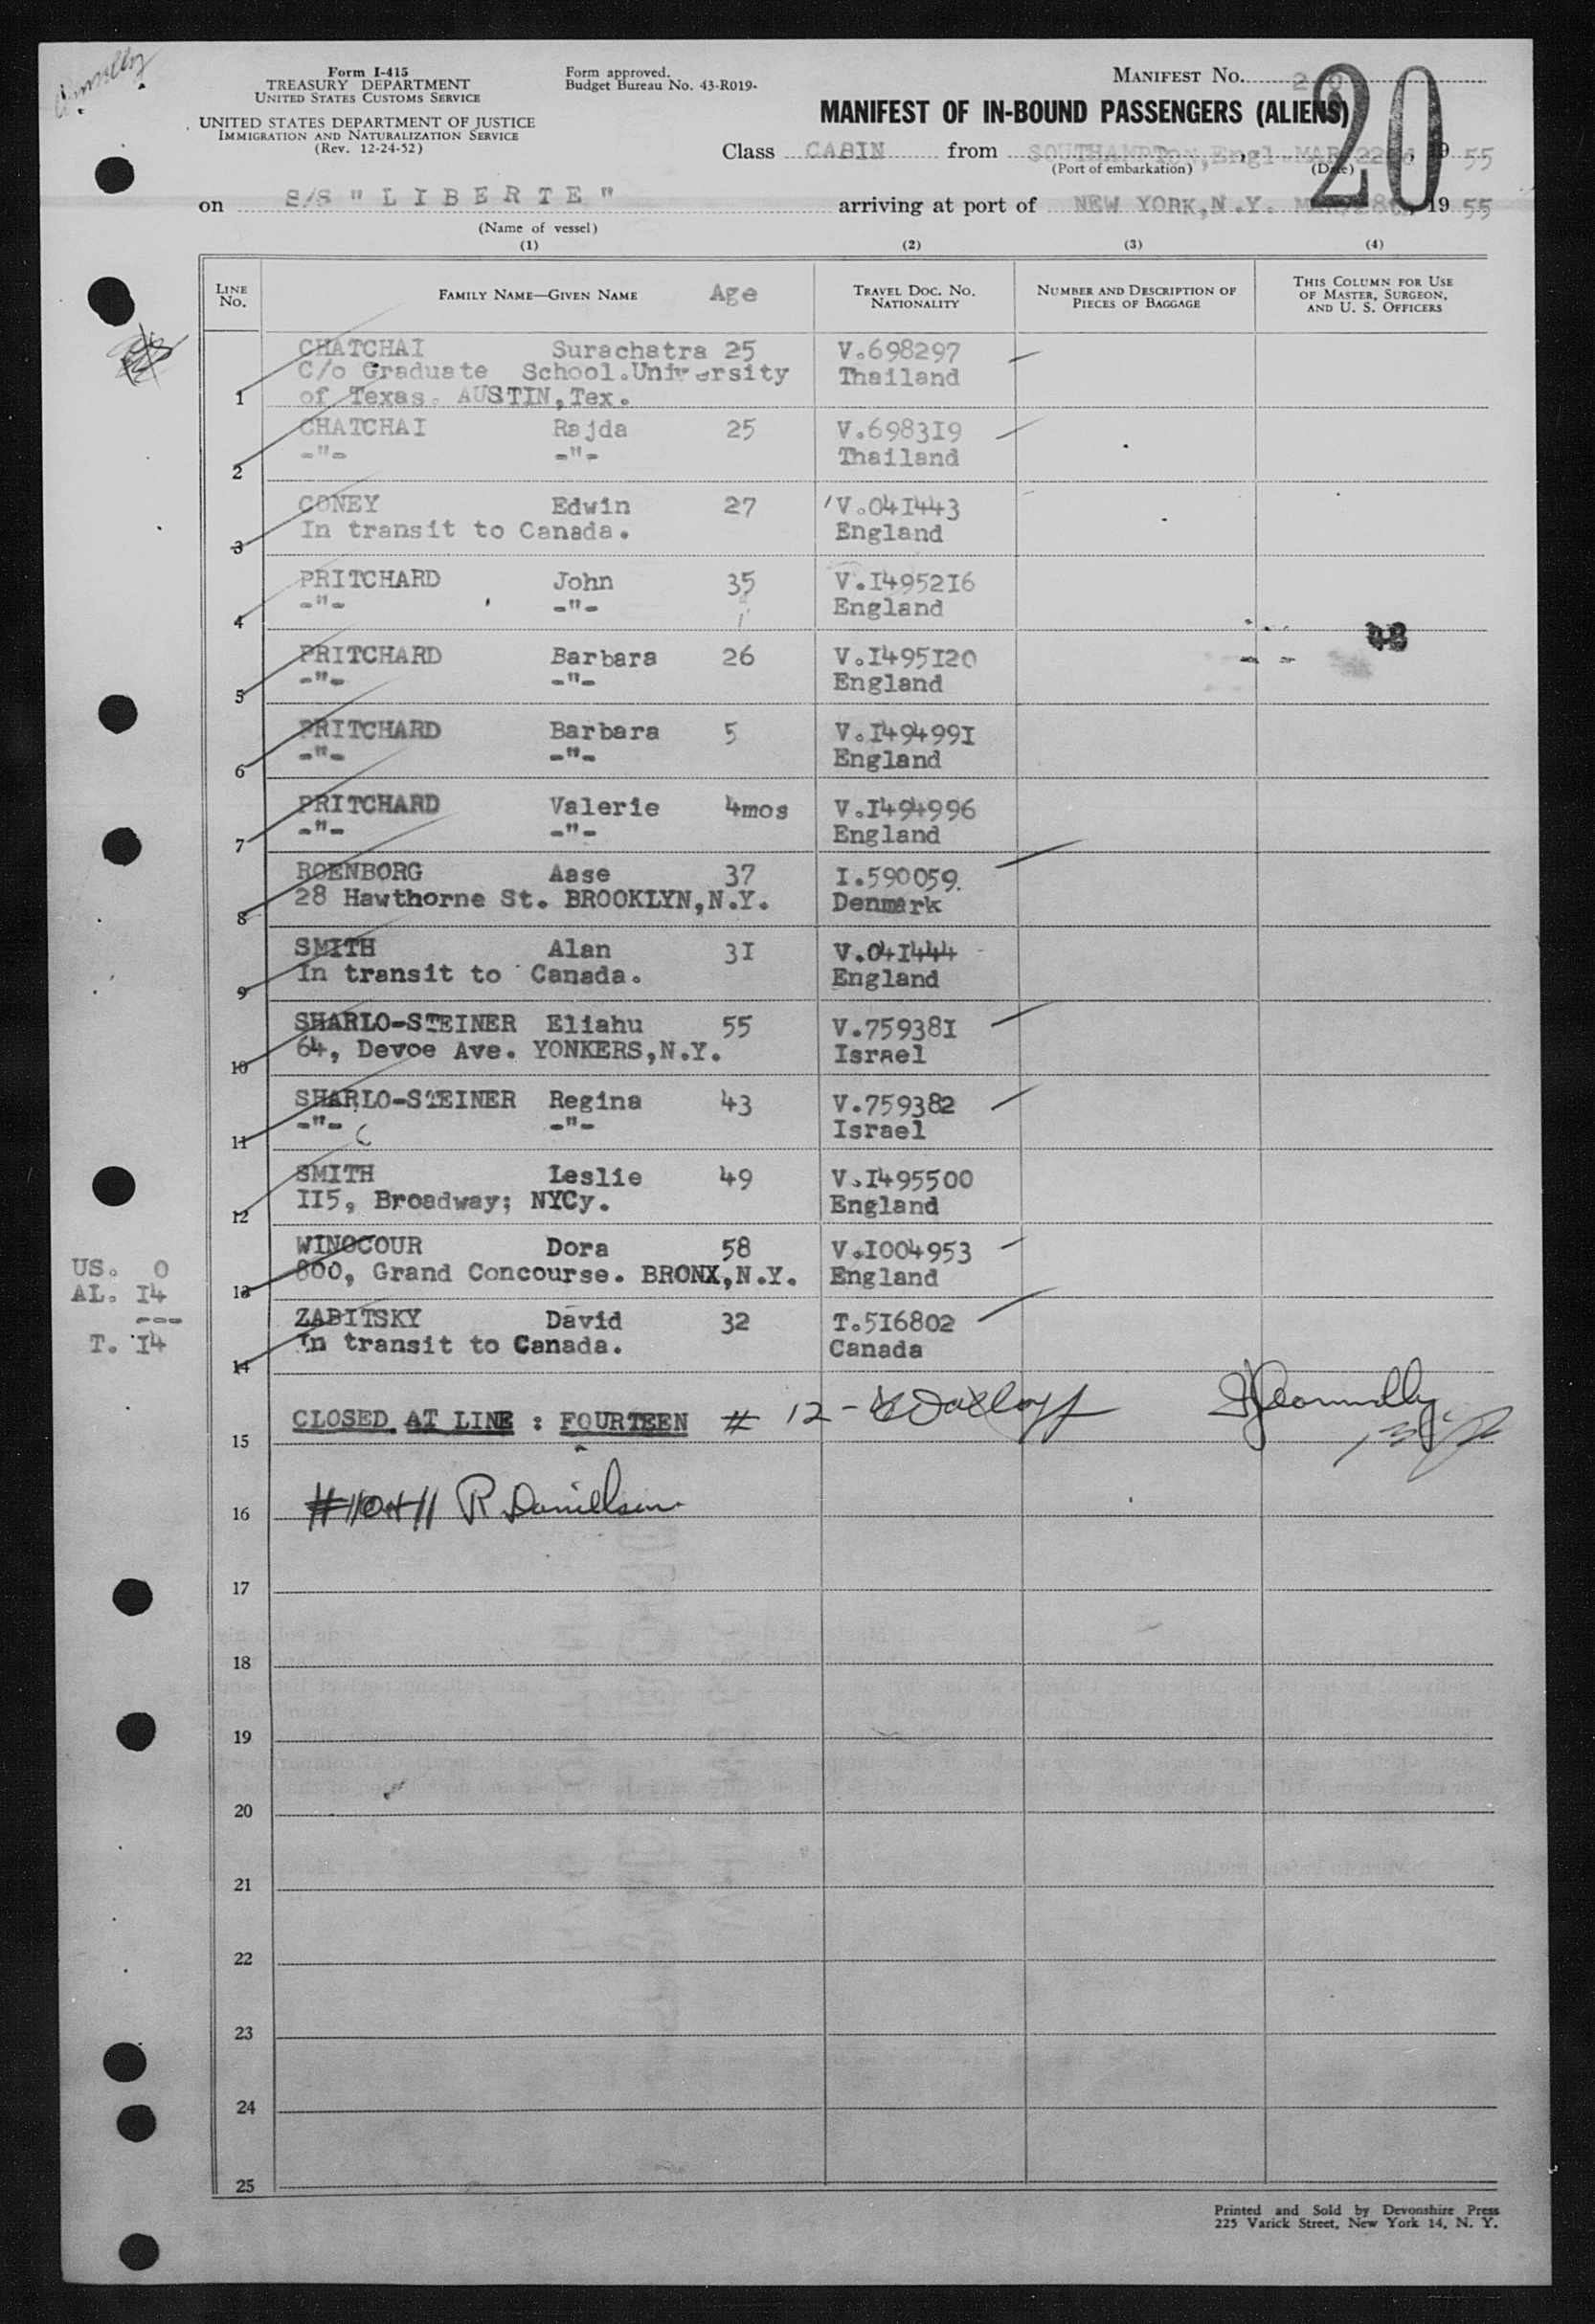 Form I-415
TREASURY DEPARTMENT
UNITED STATES CUSTOMS SERVICE
UNITED STATES DEPARTMENT OF JUSTICE
IMMIGRATION AND NATURALIZATION SERVICE
(Rev. 12-24-52)
Form approved.
Budget Bureau No. 43-R019-
MANIFEST No. 20
MANIFEST OF IN-BOUND PASSENGERS (ALIENS)
Class CABIN from SOUTHAMPTON, Engl. MAR 22 , 19 55
(Port of embarkation) (Date)
on S/S "LIBERTE" arriving at port of NEW YORK, N.Y. 19 55
(Name of vessel)
(1) (2) (3) (4)
LINE No. FAMILY NAME—GIVEN NAME Age TRAVEL DOC. NO. NATIONALITY NUMBER AND DESCRIPTION OF PIECES OF BAGGAGE THIS COLUMN FOR USE OF MASTER, SURGEON, AND U. S. OFFICERS
CHATCHAI Surachatra 25 V.698297
C/o Graduate School.University Thailand
1 of Texas. AUSTIN,Tex.
CHATCHAI Rajda 25 V.698319
2 -"- -"- Thailand
CONEY Edwin 27 V.041443
3 In transit to Canada. England
PRITCHARD John 35 V.I495216
4 -"- -"- England
PRITCHARD Barbara 26 V.I495120
5 -"- -"- England
PRITCHARD Barbara 5 V.I49499I
6 -"- -"- England
PRITCHARD Valerie 4mos V.I494996
7 -"- -"- England
ROENBORG Aase 37 I.590059.
8 28 Hawthorne St. BROOKLYN,N.Y. Denmark
SMITH Alan 3I V.04I444
9 In transit to Canada. England
SHARLO-STEINER Eliahu 55 V.75938I
10 64, Devoe Ave. YONKERS,N.Y. Israel
SHARLO-STEINER Regina 43 V.759382
11 -"- -"- Israel
SMITH Leslie 49 V.I495500
12 II5, Broadway; NYCy. England
WINOCOUR Dora 58 V.I004953
13 800, Grand Concourse. BRONX,N.Y. England
ZABITSKY David 32 T.5I6802
14 In transit to Canada. Canada
US. 0
AL. I4
---
T. I4
15 CLOSED AT LINE : FOURTEEN # 12 -
16 #10+11 R Danielson
17
18
19
20
21
22
23
24
25
Printed and Sold by Devonshire Press
225 Varick Street, New York 14, N. Y.